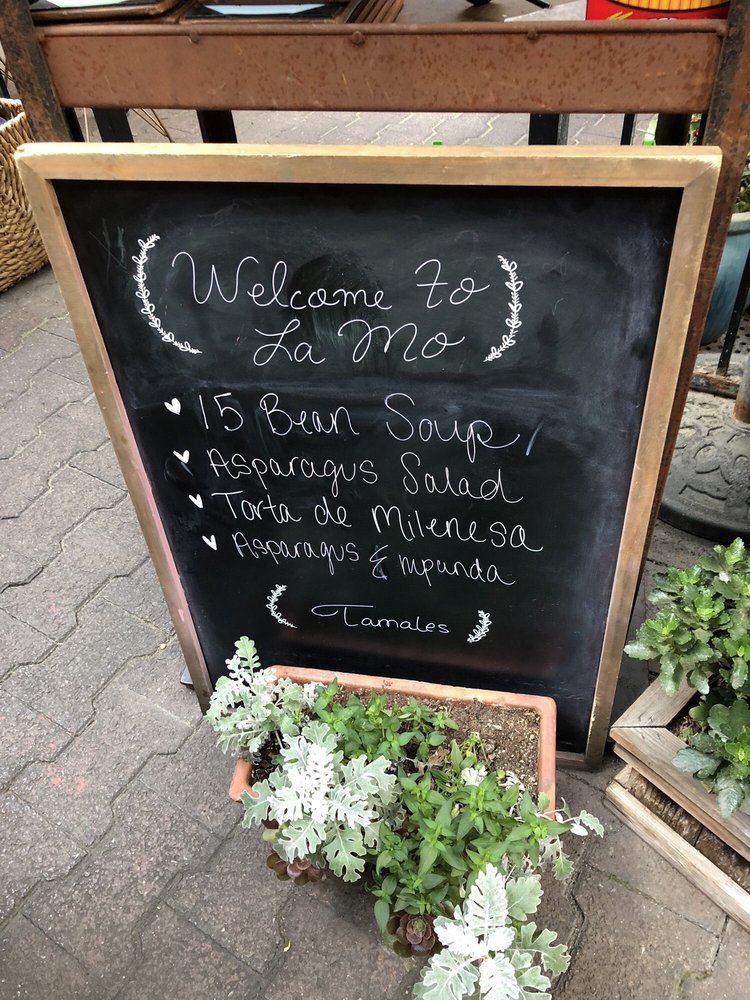 Welcome to
La Mo
15 Bean Soup
Asparagus Salad
Torta de Milenesa
Asparagus Empanda
Tamales